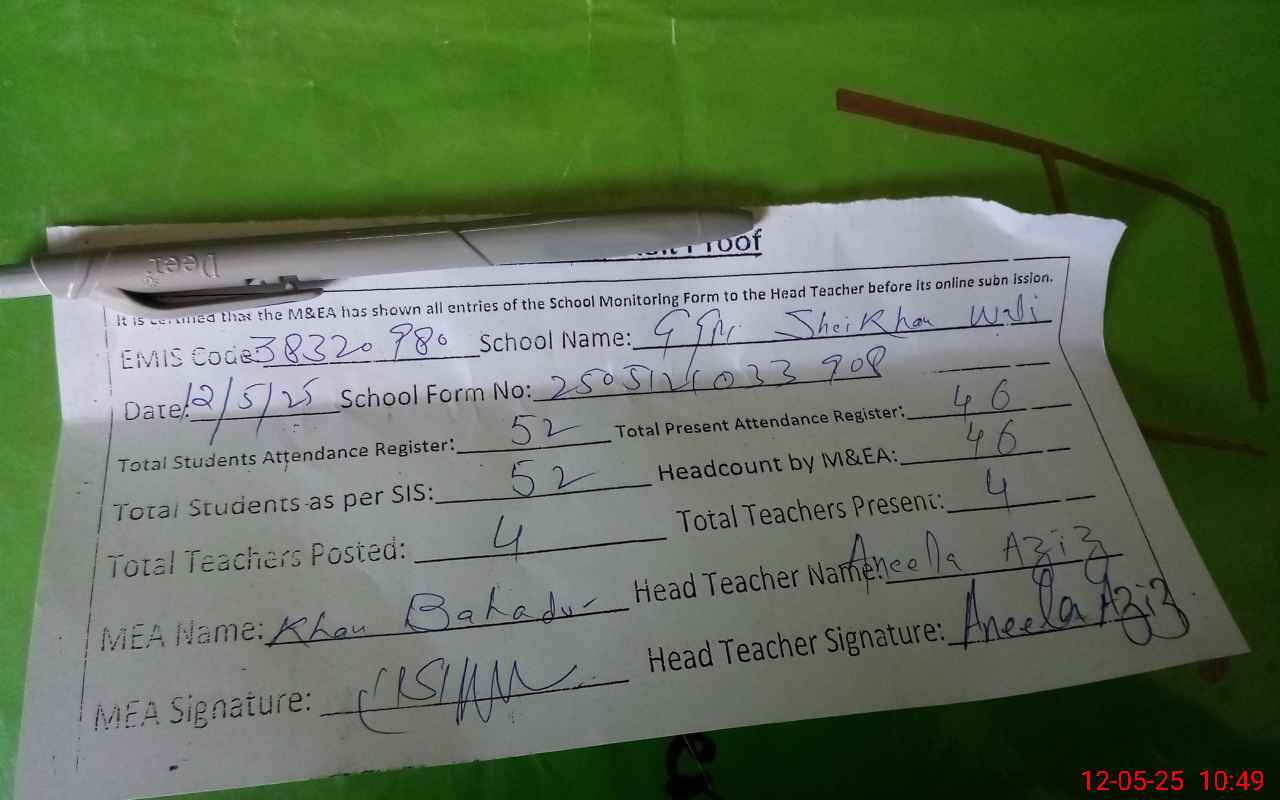 Deer
Proof
It is certified that the M&EA has shown all entries of the School Monitoring Form to the Head Teacher before its online subn ission.
EMIS Code 38320980 School Name: GGPS Sheikhan Wali
Date: 12/5/25 School Form No: 2505121033908
Total Students Attendance Register: 52 Total Present Attendance Register: 46
Total Students as per SIS: 52 Headcount by M&EA: 46
Total Teachers Posted: 4 Total Teachers Present: 4
MEA Name: Khan Bahadur Head Teacher Name: Aneela Aziz
MEA Signature: Head Teacher Signature: Aneela Aziz
12-05-25 10:49